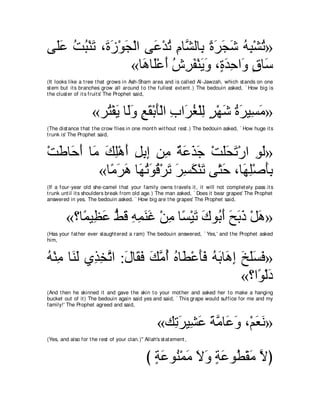 «تُشْبِهُ شَجَرَةً بِالشَّامِ تُدْعَى الْجَوْزَةَ، تَنْبُتُ عَلَى
سَاقٍ وَاحِدَةٍ، وَيَنْفَرِشُ أَعْلَاهَا»
(It looks like a tree that grows in Ash-Sham area and is called Al-Jawzah, which stands on one
stem but its branches grow all around to the fullest extent.) The bedouin asked, ` How big is
the cluster of its fruits' The Prophet said,
«مَسِيرَةُ شَهْرٍ لِلْغُرَابِ الْأَبْقَعِ وَلَا يَفْتُرُ»
(The distance that the crow flies in one month without rest.) The bedouin asked, ` How huge its
trunk is' The Prophet said,
«لَوِ ارْتَحَلَتْ جَذَعَةٌ مِنْ إِبِلِ أَهْلِكَ مَا أَحَاطَتْ
بِأَصْلِهَا، حَتَّى تَنْكَسِرَ تَرْقُوَتُهَا هَرَمًا»
(If a four-year old she-camel that your family owns travels it, it will not completely pass its
trunk until its shoulders break from old age.) The man asked, ` Does it bear grapes' The Prophet
answered in yes. The bedouin asked, ` How big are the grapes' The Prophet said,
«هَلْ ذَبَحَ أَبُوكَ تَيْسًا مِنْ غَنَمِهِ قَطُّ عَظِيمًا؟»
(Has your father ever slaughtered a ram) The bedouin answered, ` Yes,' and the Prophet asked
him,
«فَسَلَخَ إِهَابَهُ فَأَعْطَاهُ أُمَّكَ فَقَالَ: اتَّخِذِي لَنَا مِنْهُ
دَلْوًا؟»
(And then he skinned it and gave the skin to your mother and asked her to make a hanging
bucket out of it) The bedouin again said yes and said, ` This grape would suffice for me and my
family!' The Prophet agreed and said,
«نَعَمْ، وَعَامَّةَ عَشِيرَتِكَ»
(Yes, and also for the rest of your clan.)'' Allah's statement,
( لاَّ مَقْطُوعَةٍ وَلاَ مَمْنُوعَةٍ )